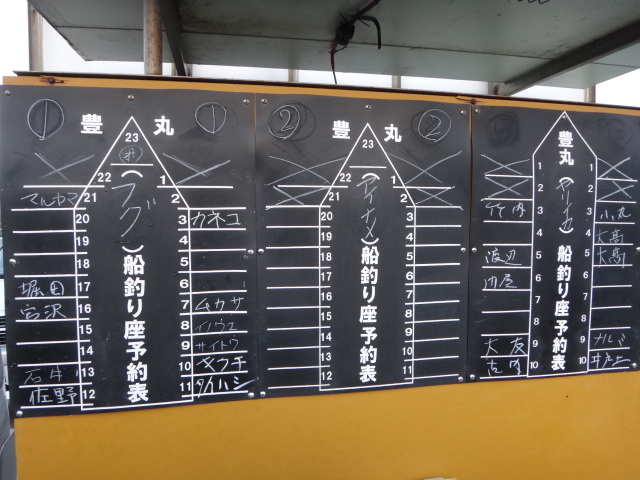 ① 豊丸 ①
23
22 1
マルヤマ 21 2
20 3 カネコ
19 4
18 5
堀田 17 6
宮沢 16 7 ムカサ
15 8 イノウエ
14 9 サイトウ
石井 13 10 タウチ
佐野 12 11 タカハシ
(フグ)船釣り座予約表
② 豊丸 ②
23
22 1
21 2
20 3
19 4
18 5
17 6
16 7
15 8
14 9
13 10
12 11
(アイナメ)船釣り座予約表
豊丸
1 1
2 2
竹内 3 3 小丸
4 4 大高
渡辺 5 5 大高
6 6
7 7
8 8
大友 9 9
10 10 井戸上
船釣り座予約表